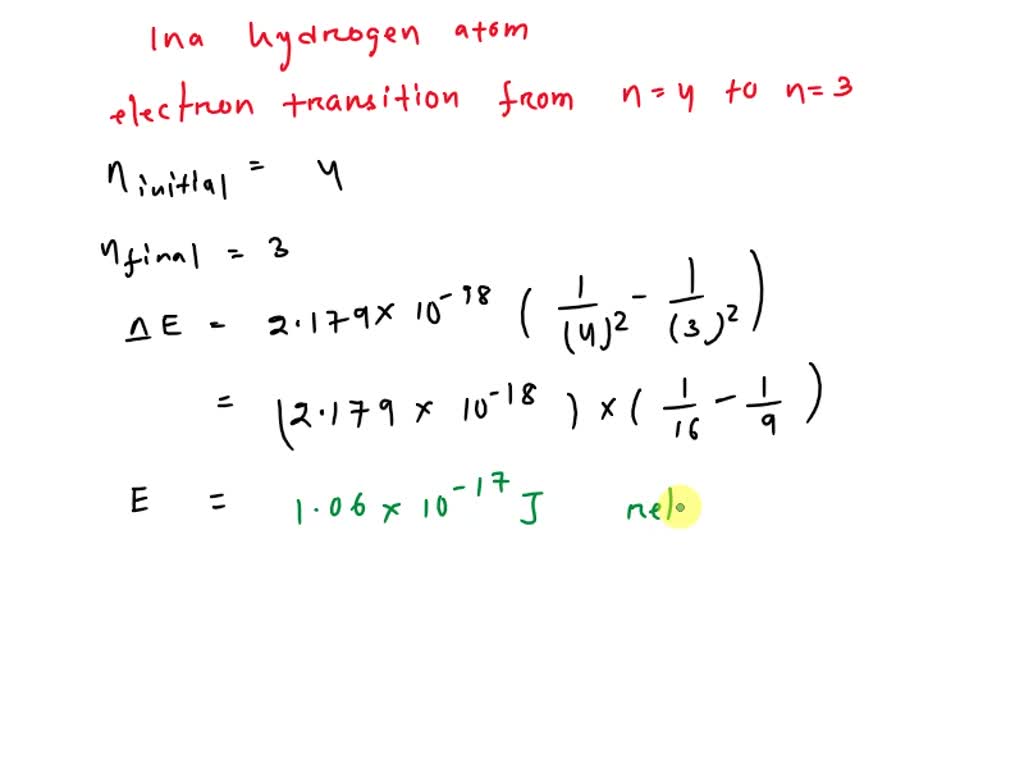 In a hydrogen atom
electron transition from n = 4 to n = 3
n initial = 4
n final = 3
ΔE = 2.179 × 10^-18 ( 1/(4)^2 - 1/(3)^2 )
= (2.179 × 10^-18 ) × ( 1/16 - 1/9 )
E = 1.06 × 10^-17 J rel